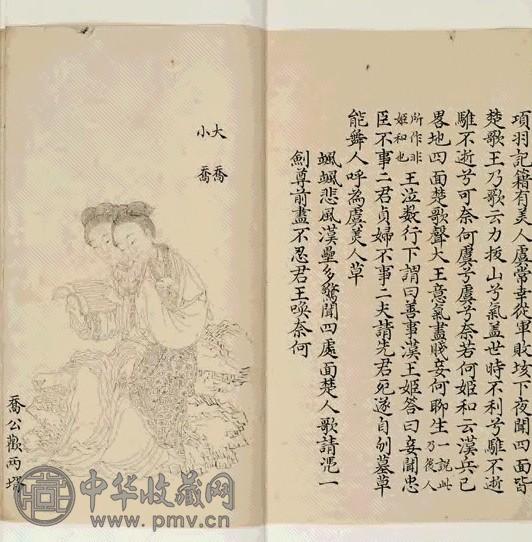 項羽記籍有美人虞常幸從軍敗垓下夜聞四面皆
楚歌王乃歌云力拔山兮氣盖世時不利兮騅不逝
騅不逝兮可奈何虞兮虞兮奈若何姬和云漢兵已
畧地四面楚歌聲大王意氣盡賤妾何聊生一說此乃後人
所作非姬和也王泣数行下謂曰善事漢王姬答曰妾聞忠
臣不事二君貞婦不事二夫請先君死遂自刎墓草
能舞人呼為虞美人草
颯颯悲風漢壘多驚聞四處面楚人歌請憑一
劍尊前盡不忍君王喚奈何
大喬
小喬
喬公歡兩壻
中华收藏网
www.pmv.cn